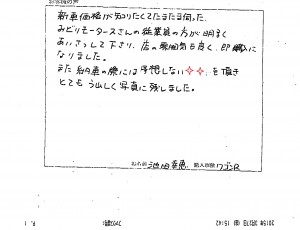 お客様の声
新車価格が知りたくてたまたま伺った。
みどりモータースさんの従業員の方が明るく
あいさつして下さり、店の雰囲気も良く、即購入に
なりました。
また納車の際には予想しない✧✧を頂き
とてもうれしく写真に残しました。
お名前 池田 購入車種 ワゴンR
P. 1